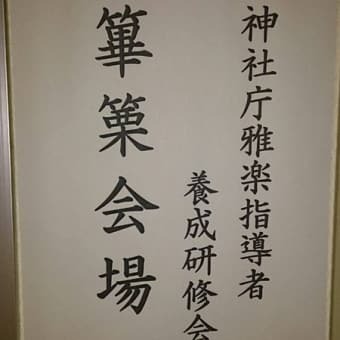 神社庁雅楽指導者
養成研修会
篳篥会場